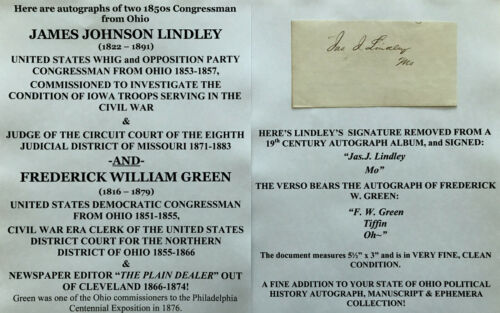 Here are autographs of two 1850s Congressman
from Ohio
JAMES JOHNSON LINDLEY
(1822 – 1891)
UNITED STATES WHIG and OPPOSITION PARTY
CONGRESSMAN FROM OHIO 1853-1857,
COMMISSIONED TO INVESTIGATE THE
CONDITION OF IOWA TROOPS SERVING IN THE
CIVIL WAR
&
JUDGE OF THE CIRCUIT COURT OF THE EIGHTH
JUDICIAL DISTRICT OF MISSOURI 1871-1883
-AND-
FREDERICK WILLIAM GREEN
(1816 – 1879)
UNITED STATES DEMOCRATIC CONGRESSMAN
FROM OHIO 1851-1855,
CIVIL WAR ERA CLERK OF THE UNITED STATES
DISTRICT COURT FOR THE NORTHERN
DISTRICT OF OHIO 1855-1866
&
NEWSPAPER EDITOR “THE PLAIN DEALER” OUT
OF CLEVELAND 1866-1874!
Green was one of the Ohio commissioners to the Philadelphia
Centennial Exposition in 1876.
Jas. J. Lindley
Mo
HERE'S LINDLEY'S SIGNATURE REMOVED FROM A
19th CENTURY AUTOGRAPH ALBUM, and SIGNED:
“Jas.J. Lindley
Mo”
THE VERSO BEARS THE AUTOGRAPH OF FREDERICK
W. GREEN:
“F. W. Green
Tiffin
Oh~”
The document measures 5½” x 3” and is in VERY FINE, CLEAN
CONDITION.
A FINE ADDITION TO YOUR STATE OF OHIO POLITICAL
HISTORY AUTOGRAPH, MANUSCRIPT & EPHEMERA
COLLECTION!